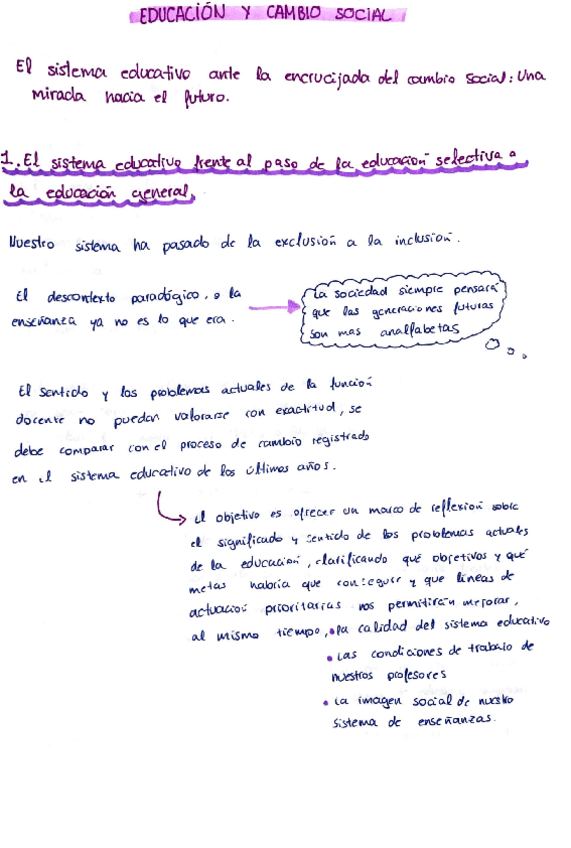 EDUCACIÓN Y CAMBIO SOCIAL
El sistema educativo ante la encrucijada del cambio social: Una
mirada hacia el futuro.
1. El sistema educativo frente al paso de la educación selectiva a
la educación general.
Nuestro sistema ha pasado de la exclusión a la inclusión.
El descontexto paradógico, o la
enseñanza ya no es lo que era.
La sociedad siempre pensará
que las generaciones futuras
son mas analfabetas
El sentido y los problemas actuales de la función
docente no pueden valorarse con exactitud, se
debe comparar con el proceso de cambio registrado
en el sistema educativo de los últimos años.
El objetivo es ofrecer un marco de reflexión sobre
el significado y sentido de los problemas actuales
de la educación, clarificando qué objetivos y qué
metas habría que conseguir y que líneas de
actuación prioritarias nos permitirán mejorar,
al mismo tiempo, • la calidad del sistema educativo
• Las condiciones de trabajo de
nuestros profesores
• La imagen social de nuestro
sistema de enseñanzas.